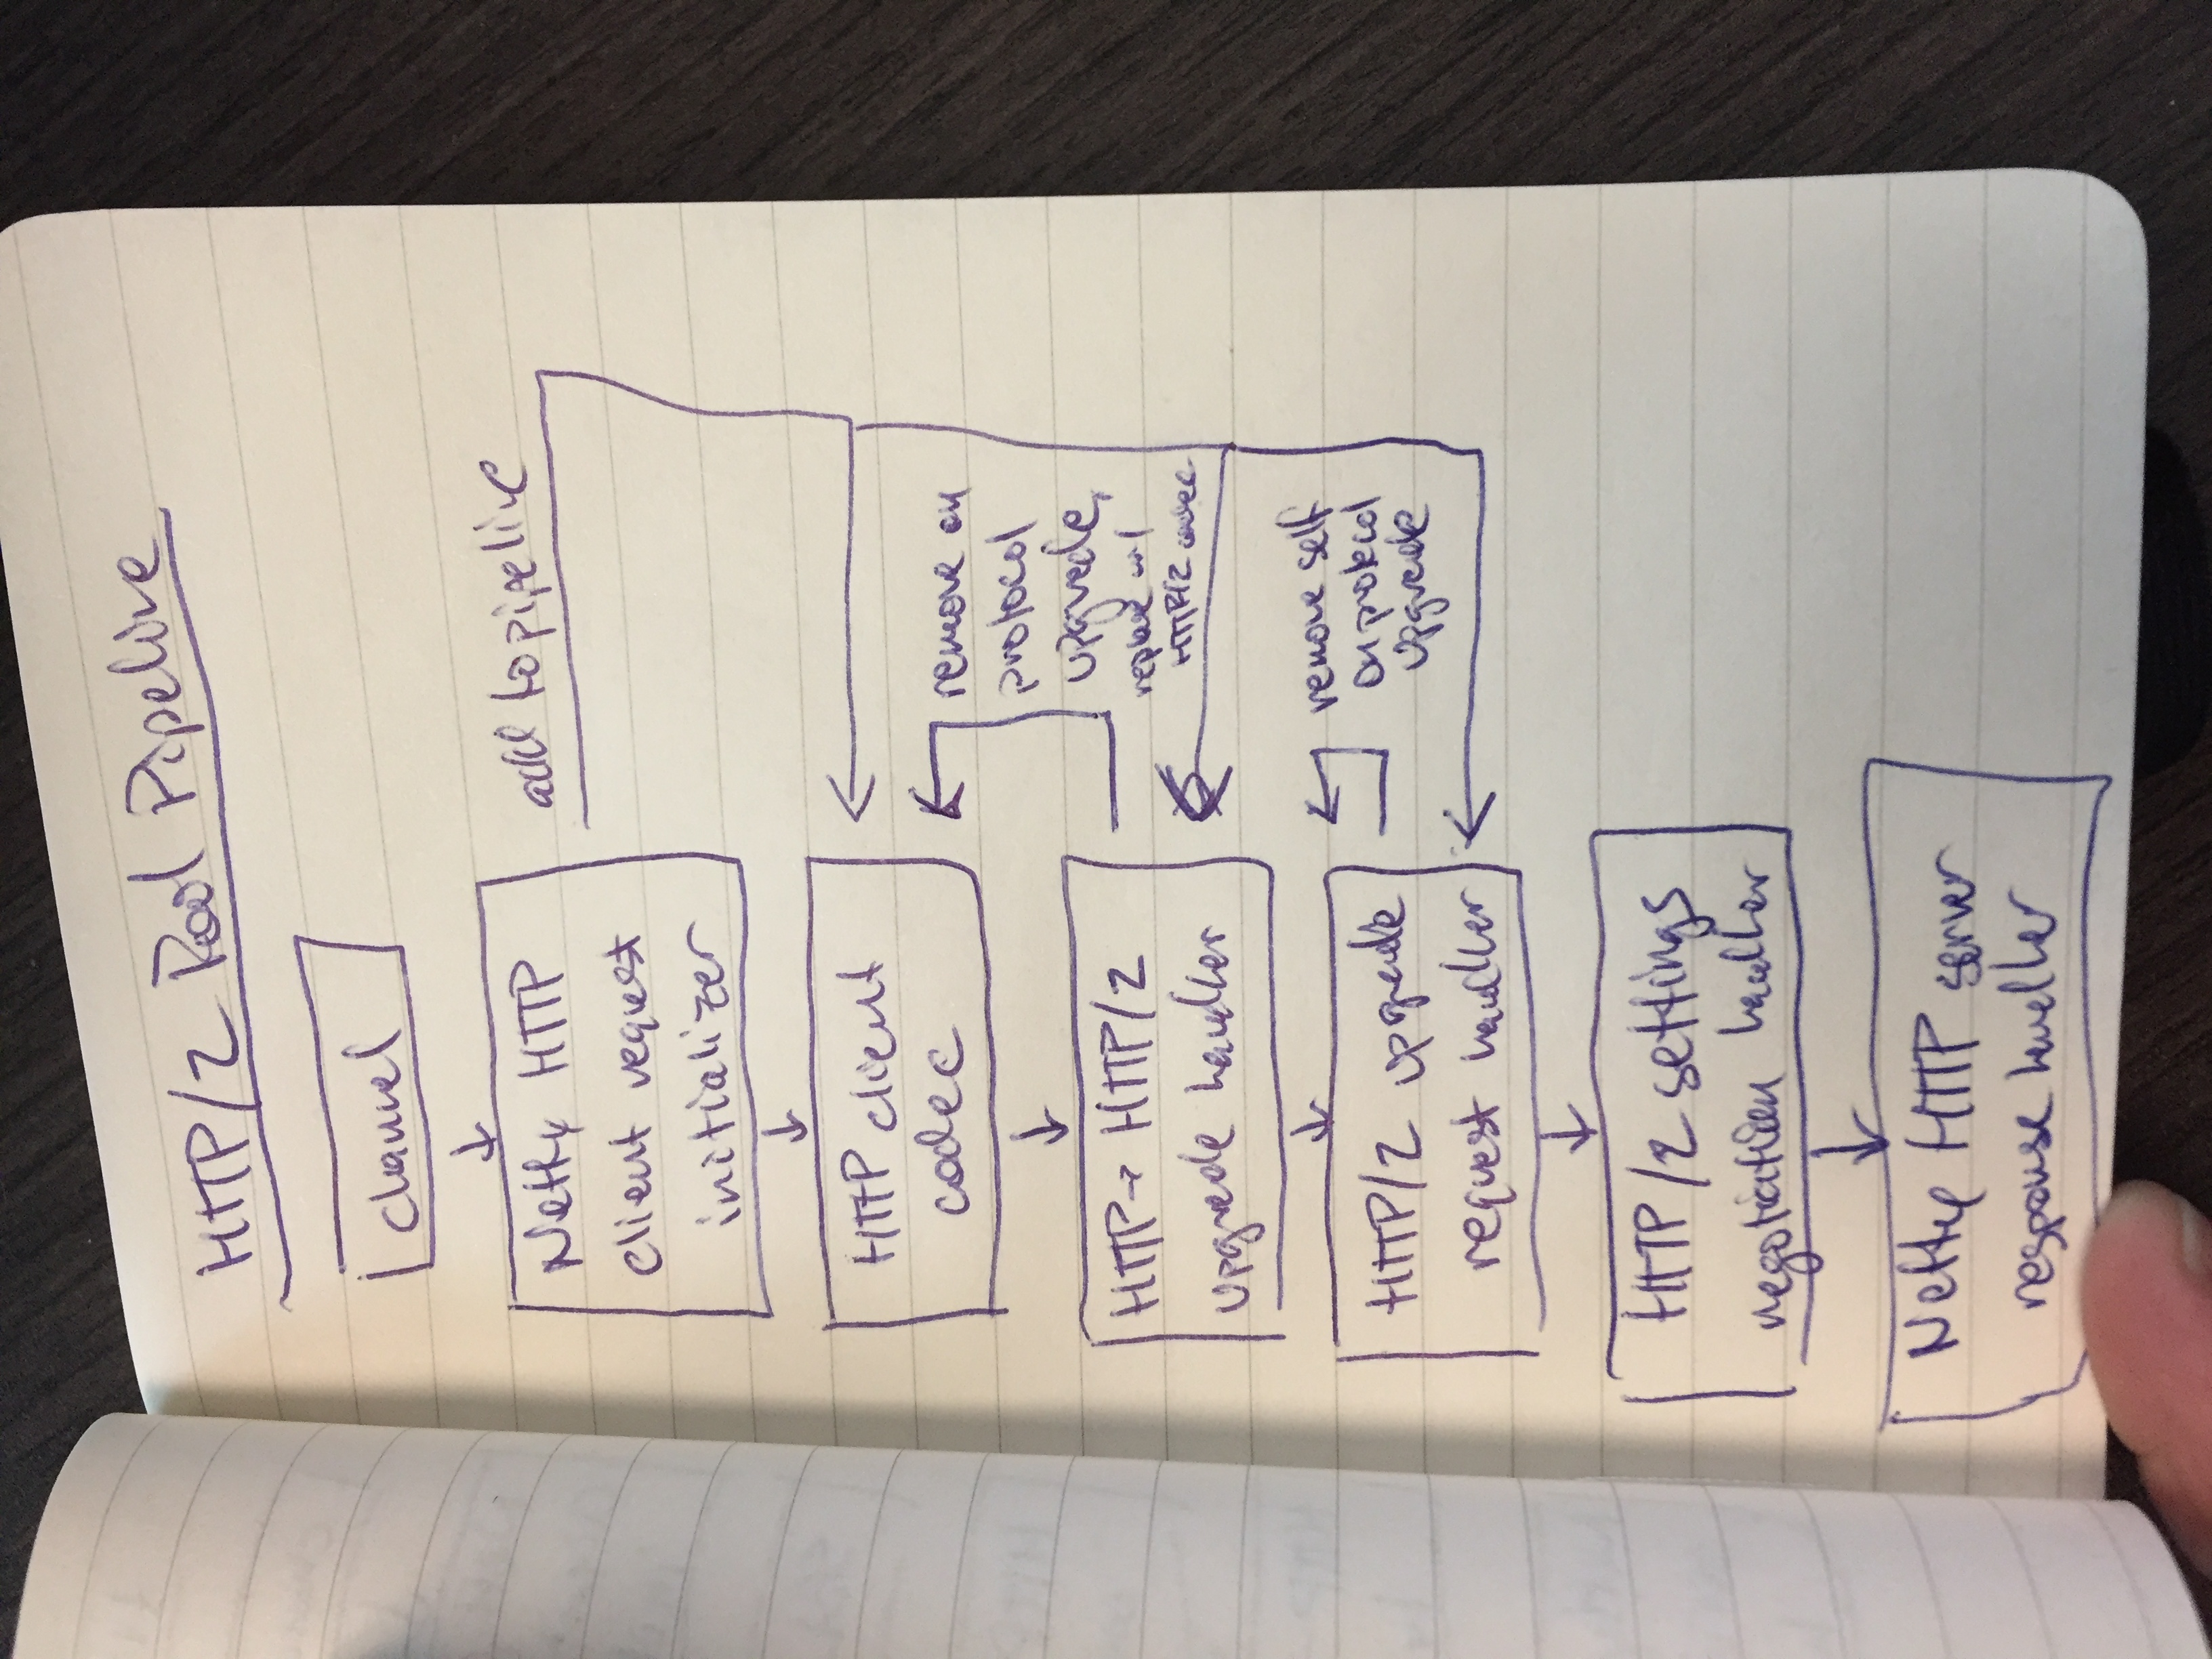 HTTP/2 Pool Pipeline
channel
Netty HTTP
client request
initializer
add to pipeline
HTTP client
codec
remove on
protocol
upgrade,
replace w/
HTTP/2 codec
HTTP → HTTP/2
upgrade handler
remove self
on protocol
upgrade
HTTP/2 upgrade
request handler
HTTP/2 settings
negotiation handler
Netty HTTP server
response handler